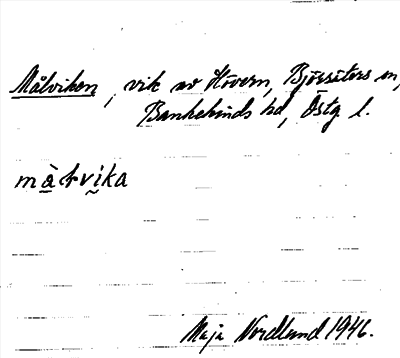 Målviken, vik av Hövern, Björsäters sn,
Bankekinds hd, Östg. l.
mà̱ɫvḭka
Maja Nordlund 1946.